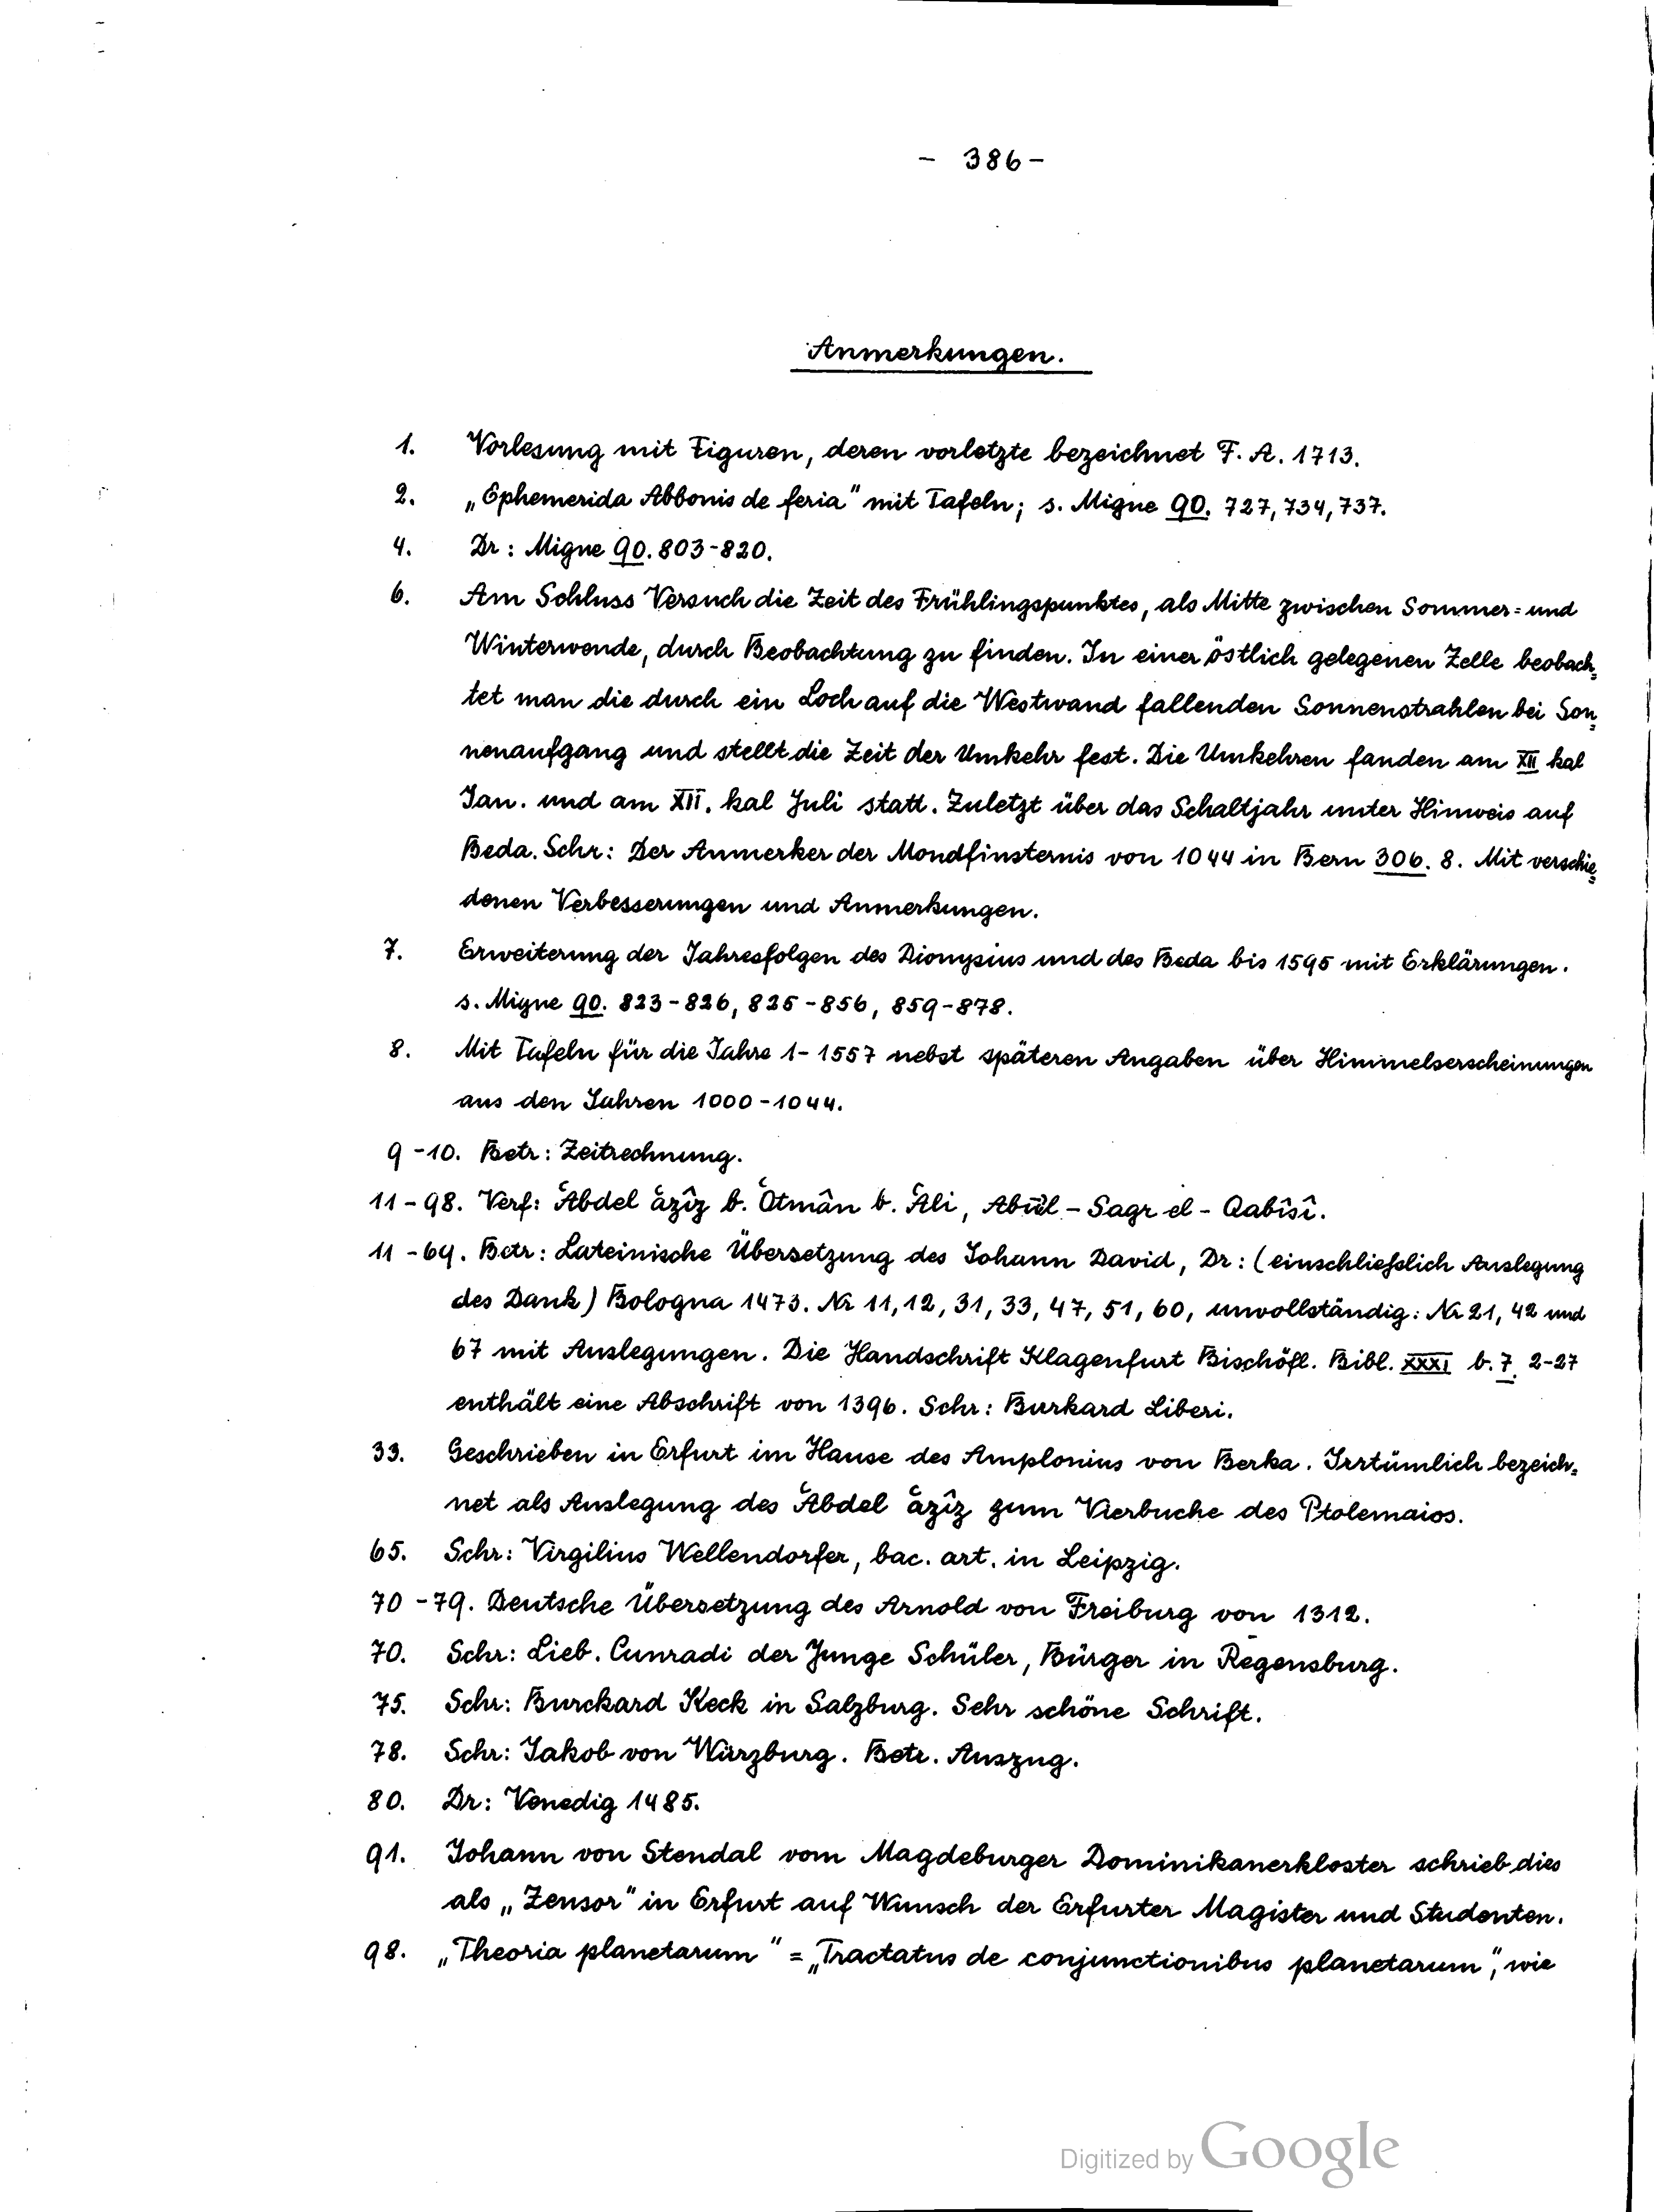 - 386 -
Anmerkungen.
1. Vorlesung mit Figuren, deren vorletzte bezeichnet F. A. 1713.
2. „Ephemerida Abbonis de feria" mit Tafeln; s. Migne 90. 727, 734, 737.
4. Dr: Migne 90. 803-820.
6. Am Schluss Versuch die Zeit des Frühlingspunktes, als Mitte zwischen Sommer= und
Winterwende, durch Beobachtung zu finden. In einer östlich gelegenen Zelle beobach=
tet man die durch ein Loch auf die Westwand fallenden Sonnenstrahlen bei Son=
nenaufgang und stellt die Zeit der Umkehr fest. Die Umkehren fanden am XII kal
Jan. und am XII. kal Juli statt. Zuletzt über das Schaltjahr unter Hinweis auf
Beda. Schr: Der Anmerker der Mondfinsternis von 1044 in Bern 306. 8. Mit verschie=
denen Verbesserungen und Anmerkungen.
7. Erweiterung der Jahresfolgen des Dionysius und des Beda bis 1595 mit Erklärungen.
s. Migne 90. 823-826, 825-856, 859-878.
8. Mit Tafeln für die Jahre 1-1557 nebst späteren Angaben über Himmelserscheinungen
aus den Jahren 1000-1044.
9-10. Betr: Zeitrechnung.
11-98. Verf: ʿAbdel ʿazîz b. ʿOtmân b. ʿAli, Abûl-Sagr el-Qabîsî.
11-69. Betr: Lateinische Übersetzung des Johann David, Dr: (einschliesslich Auslegung
des Dank) Bologna 1473. Nr 11, 12, 31, 33, 47, 51, 60, unvollständig: Nr 21, 42 und
67 mit Auslegungen. Die Handschrift Klagenfurt Bischöfl. Bibl. XXXI b. 7. 2-27
enthält eine Abschrift von 1396. Schr: Burkard Liberi.
33. Geschrieben in Erfurt im Hause des Amplonius von Berka. Irrtümlich bezeich=
net als Auslegung des ʿAbdel ʿazîz zum Vierbuche des Ptolemaios.
65. Schr: Virgilius Wellendorfer, bac. art. in Leipzig.
70-79. Deutsche Übersetzung des Arnold von Freiburg von 1312.
70. Schr: Lieb. Cunradi der Junge Schüler, Bürger in Regensburg.
75. Schr: Burckard Keck in Salzburg. Sehr schöne Schrift.
78. Schr: Jakob von Würzburg. Betr. Auszug.
80. Dr: Venedig 1485.
91. Johann von Stendal vom Magdeburger Dominikanerkloster schrieb dies
als „Zensor" in Erfurt auf Wunsch der Erfurter Magister und Studenten.
98. „Theoria planetarum" = „Tractatus de conjunctionibus planetarum", wie
Digitized by Google